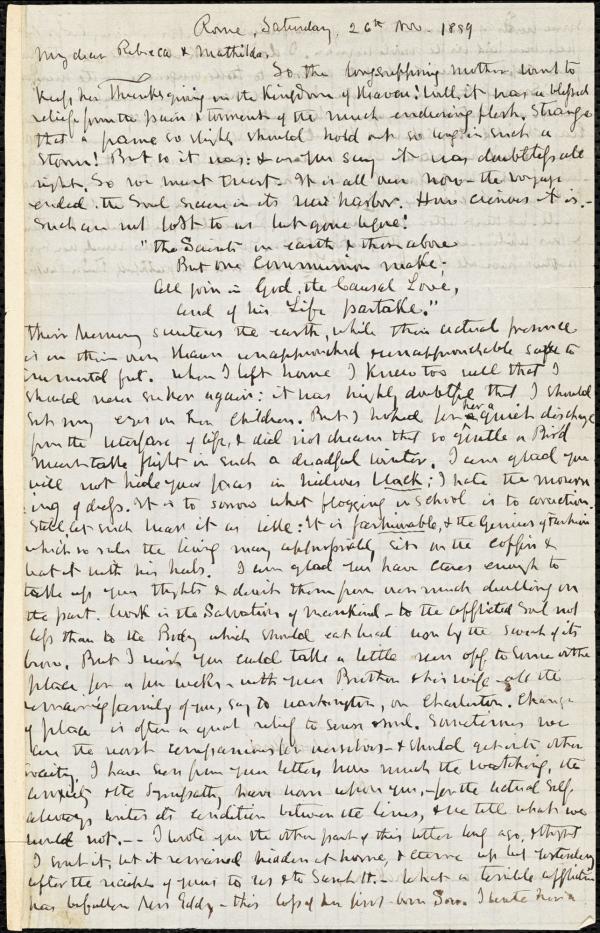 Rome, Saturday, 26th Nov. 1859
My dear Rebeca & Mathilda,
So the longsuffering mother went to
keep her Thanksgiving in the Kingdom of Heaven! Well, it was a blessed
relief from the pain & torment of the much enduring flesh. Strange
that a frame so slight should hold out so long in such a
storm! But so it was: & as you say it was doubtless all
right. So we must trust. It is all over now – the voyage
ended, the Soul secure in its new harbor. How curious it is. –
Such are not lost to us but gone before!
"The Saints on earth & those above
But one Communion make;
All join in God, the Causal Love,
and of his Life partake."
Their memory sweetens the earth, while their actual presence
is in their own Heaven unapproached & unapproachable save to
immortal feet. When I left home I knew too well that I
should never see her again: it was highly doubtful that I should
set my eyes on her children. But I hoped for her a quiet discharge
from the warfare of life, & did not dream that so gentle a Bird
must take flight in such a dreadful winter. I am glad you
will not hide your faces in hideous black; I hate the mourn
ing of dress. It is to sorrow what flogging in School is to correction.
Still, let such wear it as like: It is fashionable, & the Genius of Fashion
which so rules the living may appropriately sit on the coffin &
beat it with his heels. I am glad you have cares enough to
take up your thoughts & divert them from over much dwelling on
the past. Work is the Salvation of mankind – to the afflicted Soul not
less than to the Body which should eat bread won by the sweat of its
brow. But I wish you could take a little run off to some other
place for a few weeks – with your Brother & his wife – all the
remaining family of you, say to Washington, or Charleston. Change
of place is often a great relief to sense & soul. Sometimes we
are the worst companions for ourselves – & should get into other
society. I have seen from your letters how much the watching, the
anxiety & the Sympathy have worn upon you, – for the actual Self
always writes its condition between the lines, & we tell what we
would not. – – I wrote you the other part of this letter long ago, & thought
I sent it, but it remained hidden at home, & came up but yesterday
after the receipt of yours to us & to Sarah H. – What a terrible affliction
has befallen Mrs Eddy – this loss of her first-born Son. I wrote